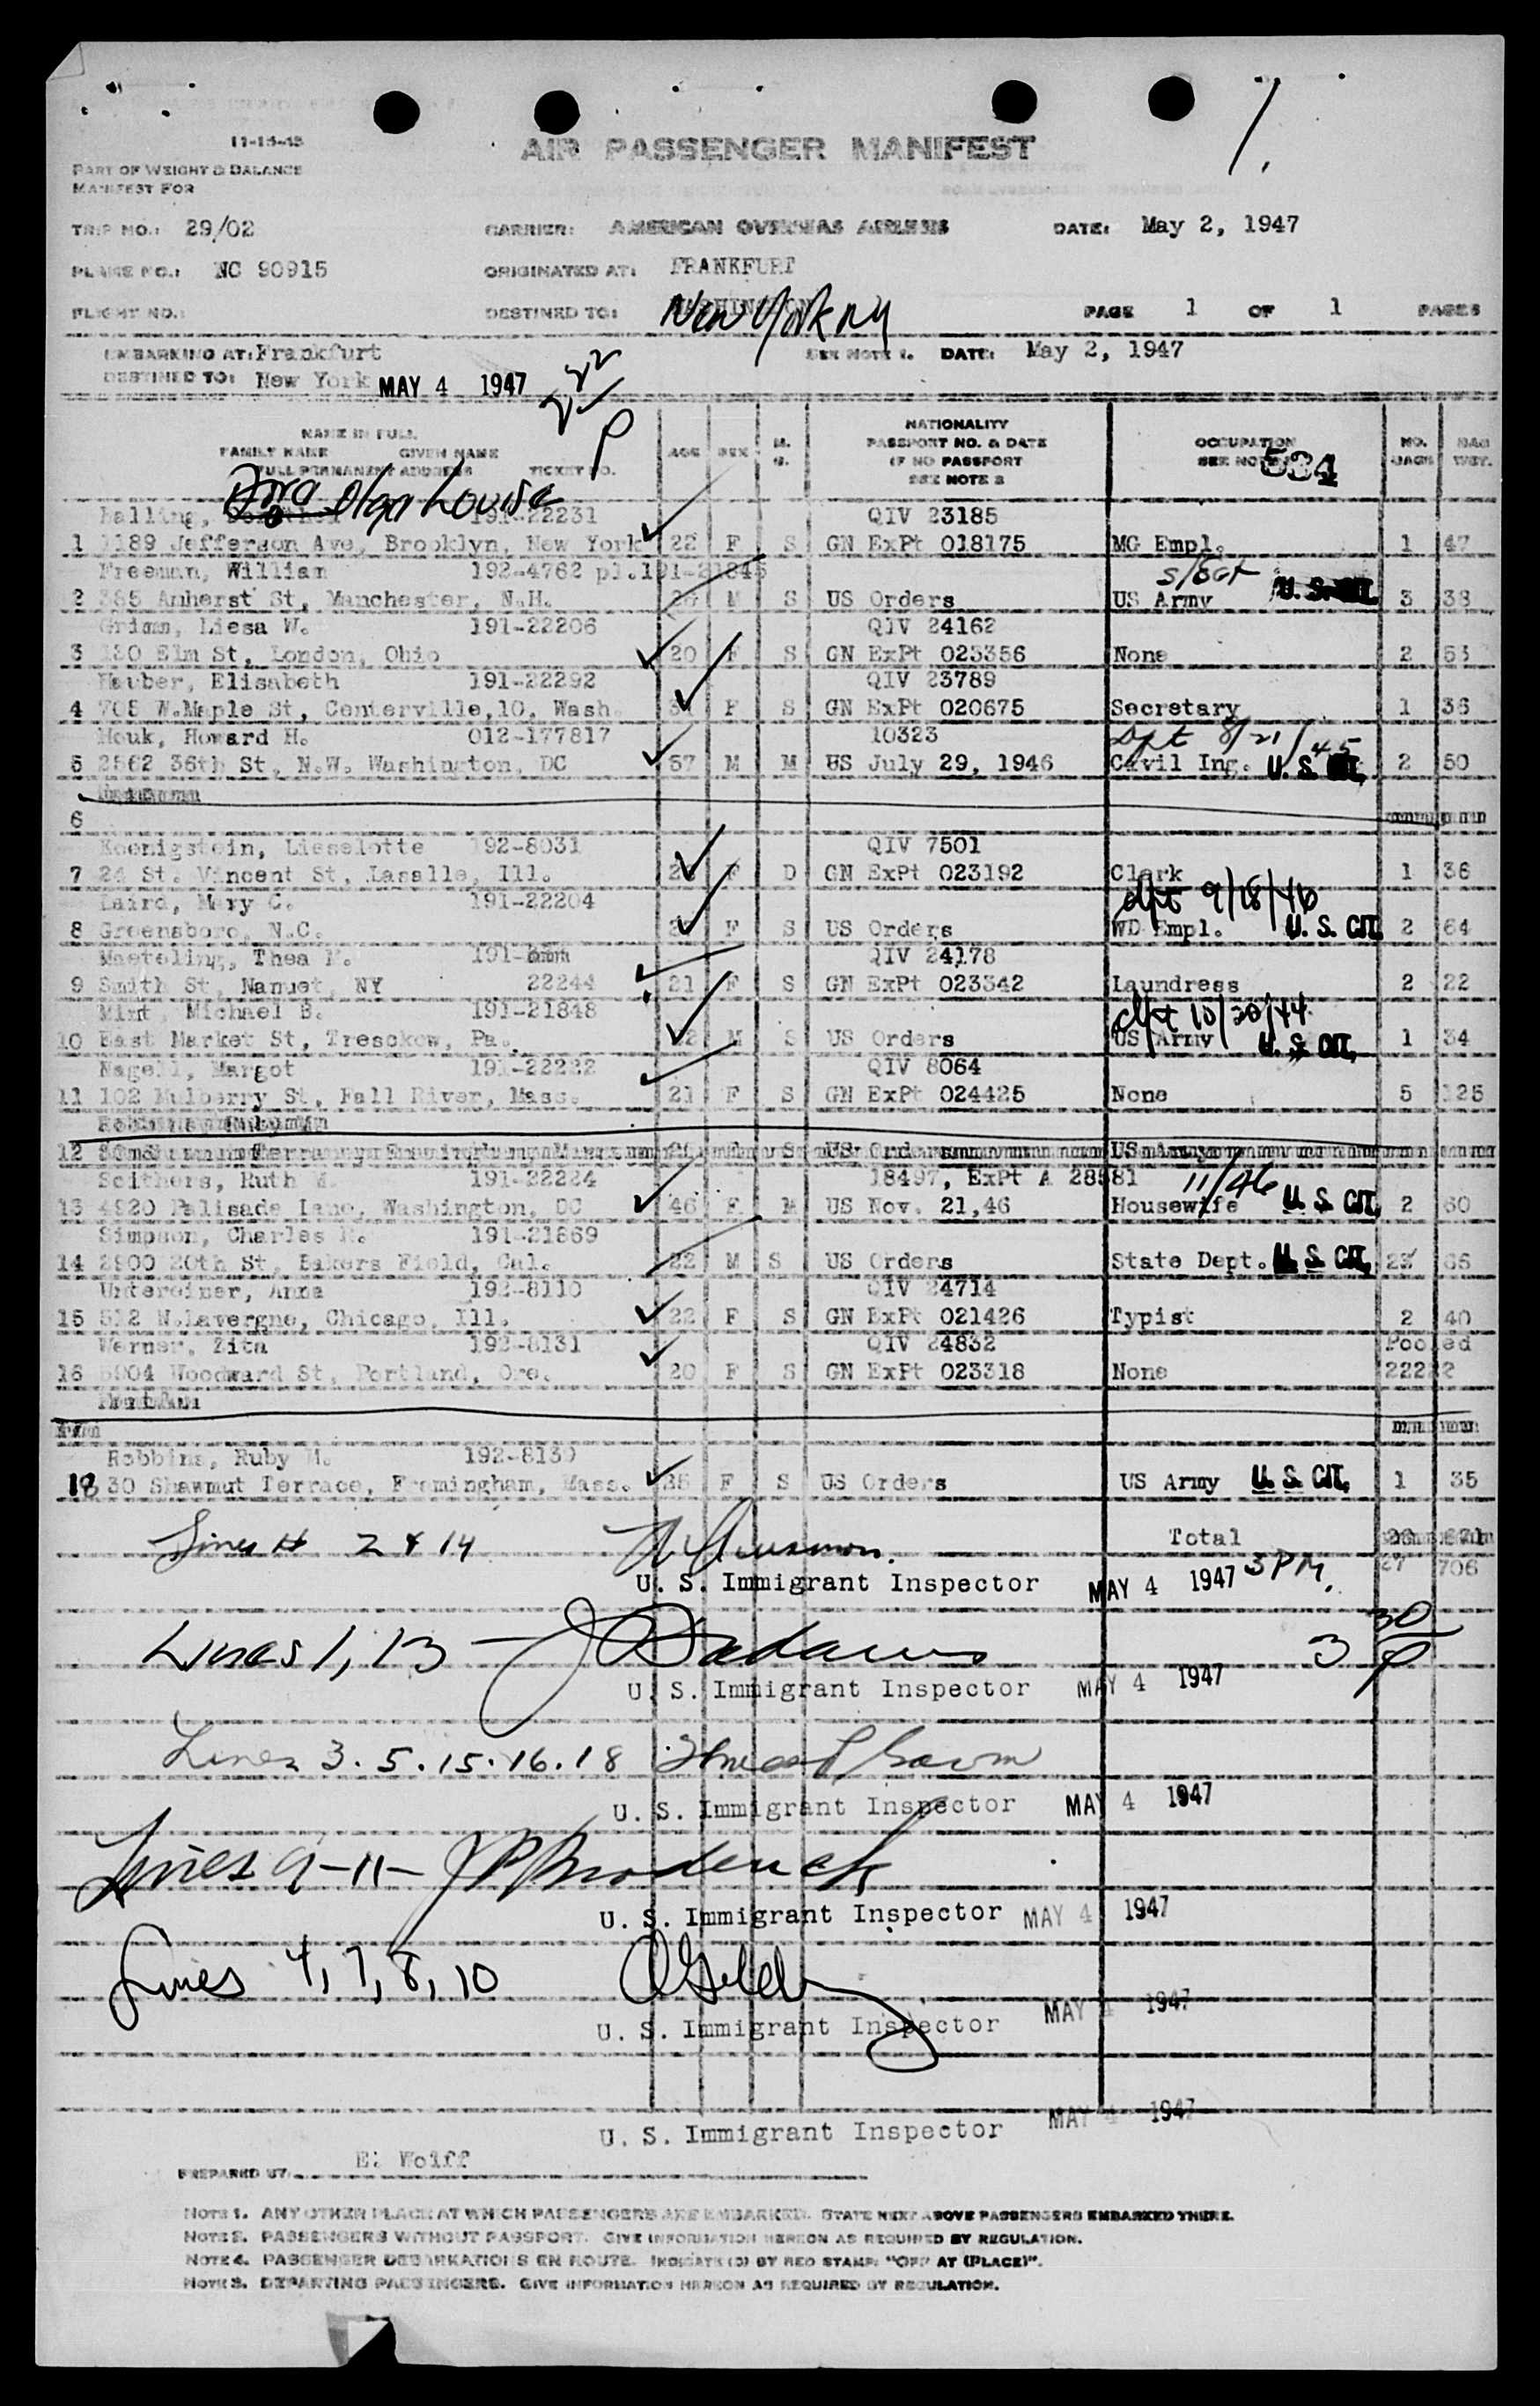 11-15-45
AIR PASSENGER MANIFEST
PART OF WEIGHT & BALANCE
MANIFEST FOR
TRIP NO.: 29/02 CARRIER: AMERICAN OVERSEAS AIRLINES DATE: May 2, 1947
PLANE NO.: NC 90915 ORIGINATED AT: FRANKFURT
FLIGHT NO.: DESTINED TO: New York NY PAGE 1 OF 1 PAGES
EMBARKING AT: Frankfurt SEE NOTE 1. DATE: May 2, 1947
DESTINED TO: New York MAY 4 1947
NAME IN FULL
FAMILY NAME GIVEN NAME
FULL PERMANENT ADDRESS TICKET NO.
AGE SEX M. S.
NATIONALITY
PASSPORT NO. & DATE
IF NO PASSPORT
SEE NOTE 2
OCCUPATION
SEE NOTE
534
NO. BAGS BAG WGT.
Olga Louise
Balling, 191-22231 QIV 23185
1 1189 Jefferson Ave, Brooklyn, New York 22 F S GN ExPt 018175 MG Empl. 1 47
Freeman, Willian 192-4762 pl.191-21845
2 385 Amherst St, Manchester, N.H. 26 M S US Orders US Army U. S. CIT. 3 38
Grimm, Liesa W. 191-22206 QIV 24162
3 130 Elm St, London, Ohio 20 F S GN ExPt 023356 None 2 53
Hauber, Elisabeth 191-22292 QIV 23789
4 705 W.Maple St, Centerville,10, Wash. F S GN ExPt 020675 Secretary 1 36
Houk, Howard H. 012-177817 10323 Dpt 8/21/45
5 2562 36th St, N.W. Washington, DC 57 M M US July 29, 1946 Civil Ing. U. S. CIT. 2 50
6
Koenigstein, Lieselotte 192-8031 QIV 7501
7 24 St. Vincent St, Lasalle, Ill. F D GN ExPt 023192 Clark 1 36
Laird, Mary C. 191-22204 dpt 9/18/46
8 Greensboro, N.C. F S US Orders WD Empl. U. S. CIT. 2 64
Maeteling, Thea P. 191- QIV 24178
9 Smith St, Nanuet, NY 22244 21 F S GN ExPt 023342 Laundress 2 22
Mint, Michael B. 191-21848 dpt 10/20/44
10 East Market St, Tresckow, Pa. 22 M S US Orders US Army U. S. CIT. 1 34
Nagell, Margot 191-22222 QIV 8064
11 102 Mulberry St, Fall River, Mass. 21 F S GN ExPt 024425 None 5 125
12 S US Orders US Army
Scithers, Ruth M. 191-22224 18497, ExPt A 28581 11/46
13 4920 Palisade Lane, Washington, DC 46 F M US Nov. 21,46 Housewife U. S. CIT. 2 60
Simpson, Charles R. 191-21869
14 2900 20th St, Bakers Field, Cal. 22 M S US Orders State Dept. U. S. CIT. 65
Untereiner, Anna 192-8110 QIV 24714
15 512 N.Lavergne, Chicago, Ill. 22 F S GN ExPt 021426 Typist 2 40
Werner, Zita 192-8131 QIV 24832 Pooled
16 5904 Woodward St, Portland, Ore. 20 F S GN ExPt 023318 None 22222
Robbins, Ruby M. 192-8139
18 30 Shawmut Terrace, Framingham, Mass. 35 F S US Orders US Army U. S. CIT. 1 35
Lines # 2 & 14 Total
27 706
U. S. Immigrant Inspector MAY 4 1947 3 PM.
Lines 1, 13 - J Badaws 3 30 P
U. S. Immigrant Inspector MAY 4 1947
Lines 3. 5. 15. 16. 18
U. S. Immigrant Inspector MAY 4 1947
Lines 9-11- JP Broderick
U. S. Immigrant Inspector MAY 4 1947
Lines 4, 7, 8, 10
U. S. Immigrant Inspector MAY 4 1947
U. S. Immigrant Inspector MAY 4 1947
PREPARED BY E. Wolff
NOTE 1. ANY OTHER PLACE AT WHICH PASSENGERS ARE EMBARKED. STATE NEXT ABOVE PASSENGERS EMBARKED THERE.
NOTE 2. PASSENGERS WITHOUT PASSPORT. GIVE INFORMATION HEREON AS REQUIRED BY REGULATION.
NOTE 4. PASSENGER DEBARKATIONS EN ROUTE. INDICATE (3) BY RED STAMP: "OFF AT (PLACE)".
NOTE 3. DEPARTING PASSENGERS. GIVE INFORMATION HEREON AS REQUIRED BY REGULATION.